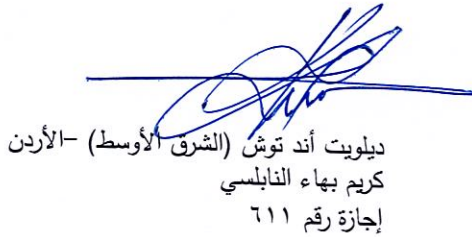 ديلويت أند توش (الشرق الأوسط) –الأردن
كريم بهاء النابلسي
إجازة رقم ٦١١